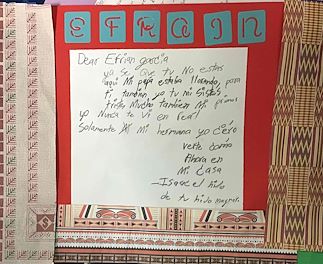 EFRAIN
Dear Efrian garcia
ya se que tu No estas
aqui Mi papa estaba llorando, para
ti tambien yo tu mi
triste Mucho tambien Mi primos
yo Nunca te vi en real
Solamente Mi hermana yo
verte como
Ahora en
Mi Casa
el hijo
de tu hijo mayor.